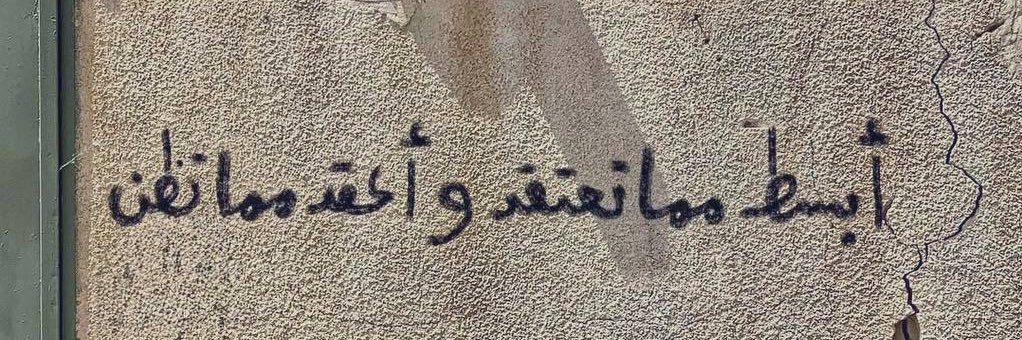 أبسط مما تعتقد و أعقد مما تظن